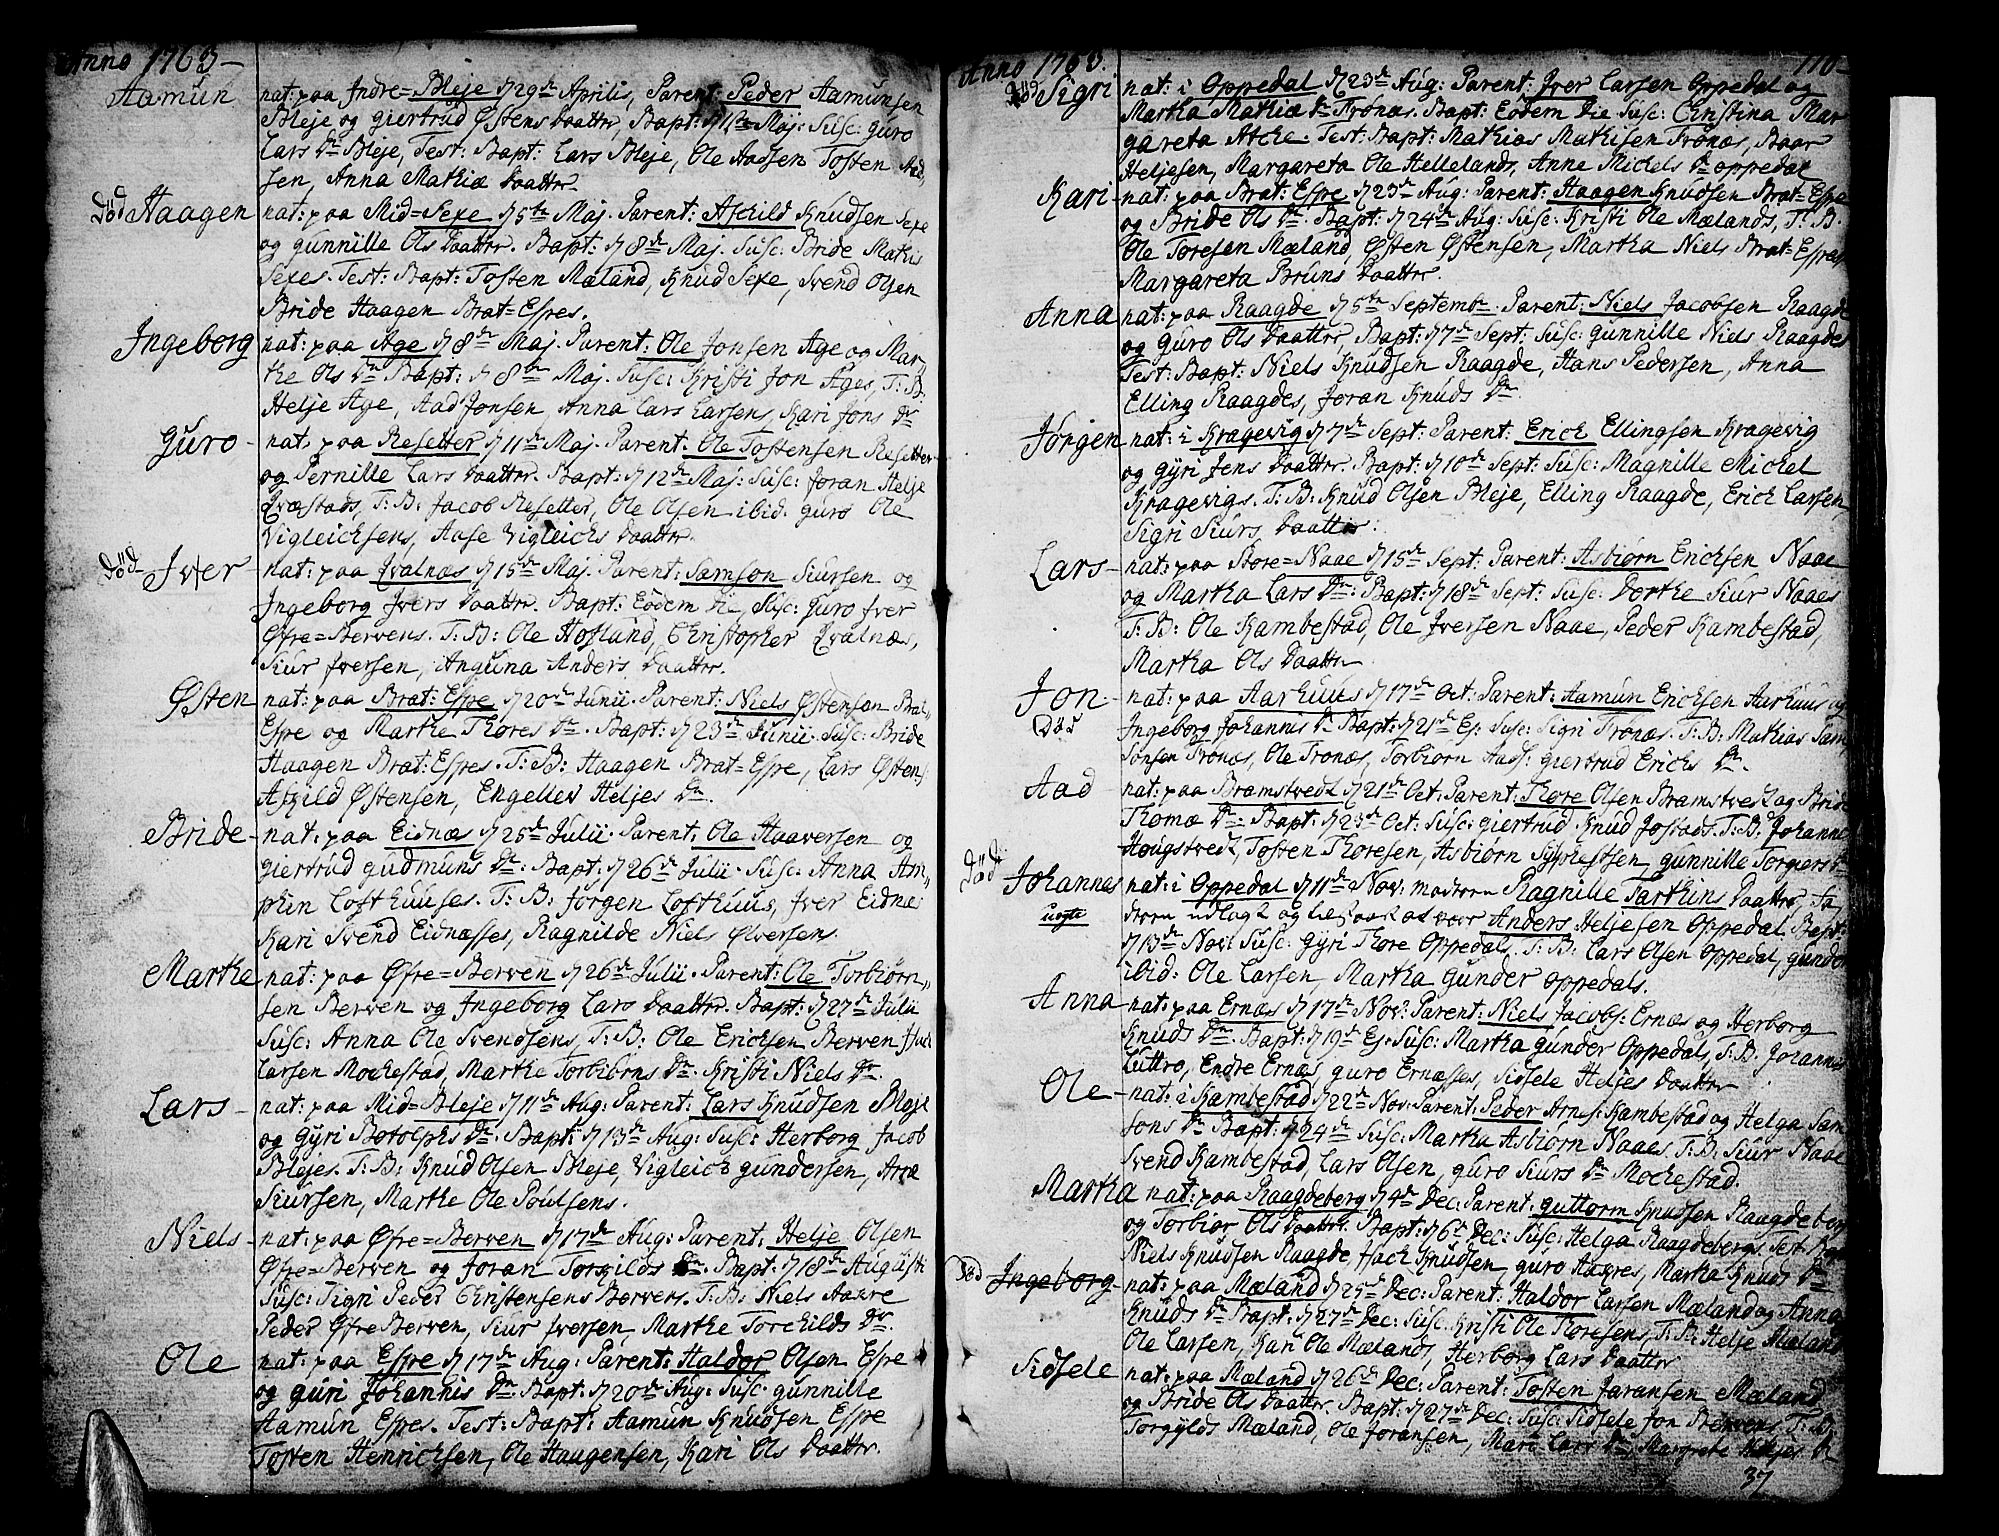 Anno 1763
Aamun
nat: paa Indre=Bleje d 29de Aprilis, Parent: Peder Aamunsen
Bleje og giertrud Østens Daatter, Bapt: d Maj: Susc: guro
Lars Dr Bleje, Test: Bapt: Lars Bleje, Ole Aadsen Tosten
sen, Anna Mathiæ Daatter.
död Haagen
nat: paa Mid=Sexe d 5te Maj. Parent: Aschild Knudsen Sexe
og gunnille Ols Daatter. Bapt: d 8de Maj. Susc: Bride Mathis
Sexes. Test: Bapt: Tosten Mæland, Knud Sexe, Svend Olsen
Bride Haagen Brat=Espes.
Ingeborg
nat: paa Age d 8de Maj. Parent: Ole Jonsen Age og Mar-
the Ols Dr Bapt: d 8de Maj. Susc: Kristi Jon Ages, T: B.
Helje Age, Aad Jonsen, Anna Lars Larsens, Kari Jons Dr
Guro -
nat: paa Resetter d 11de Maj. Parent: Ole Tostensen Resetter
og Pernille Lars Daatter. Bapt: d 12de Maj: Susc: Joran Helje
Qvæstads, T: B: Jacob Resetter, Ole Olsen ibid. guro Ole
Vigleichsens, Aase Vigleichs Daatter.
död Iver
nat: paa Qvalnæs d 15de Maj. Parent: Samson Siursen og
Ingeborg Ivers Daatter. Bapt: Eodem Die Susc: Guro Iver
Øfre=Bervens. T: B: Ole Hofland, Christopher Qvalnæs,
Siur Iversen, Anguna Anders Daatter.
Østen
nat: paa Brat: Espe d 20de Junii. Parent: Niels Østensøn Brat-
Espe og Marthe Thores Dr. Bapt: d 23de Junii. Susc: Bride
Haagen Brat: Espes. T: B: Haagen Brat=Espe, Lars Østens:
Askild Østensen, Engellev Heljes Dr.
Bride -
nat: paa Eidnæs d 25de Julii. Parent: Ole Haaversen og
giertrud gudmuns Dr: Bapt: d 26de Julii. Susc: Anna Am-
phin Lofthuuses. T: B: Jörgen Lofthuus, Iver Eidnæs
Kari Svend Eidnæsses, Ragnilde Niels Olversens.
Marthe
nat: paa Øfre=Berven d 26de Julii. Parent: Ole Torbiørn-
sen Berven og Ingeborg Lars Daatter. Bapt: d 27de Julii
Susc: Anna Ole Svendsens, T: B: Ole Erichsen Berven
Larsen Mochestad, Marthe Torbiörns Dr. Kristi Niels Dr.
Lars -
nat: paa Mid=Bleje d 11de Aug: Parent: Lars Knudsen Bleje
og Gyri Botolphs Dr. Bapt: d 13de Aug: Susc: Herborg Jacob
Blejes. T: B: Knud Olsen Bleje, Vigleich gundersen, Arne
Siursen, Marthe Ole Poulsens.
Niels -
nat: paa Øfre=Berven d 17de Aug: Parent: Helje Olsen
Øfre=Berven og Joran Torgilds Dr. Bapt: d 18de Augusti
Susc: Sigri Peder Christensens Bervens. T: B: Niels Aakre
Peder Øfre Berven, Siur Iversen, Marthe Torchilds Dr.
Ole
nat: paa Espe d 17de Aug: Parent: Haldor Olsen Espe
og guri Johannis Dr. Bapt: d 20de Aug: Susc: gunnille
Aamun Espes. Test: Bapt: Aamun Knudsen Espe
Tosten Henrichsen, Ole Haugensen, Kari Ols Daatter.
Anno 1763.
110
död Sigri
nat: i Oppedal d 23de Aug: Parent: Iver Larsen Oppedal og
Martha Mathiæ Dr Tronæs. Bapt: Eodem Die Susc: Christina Mar-
gareta Atche. Test: Bapt: Mathias Mathisen Tronæs, Baar
Heljesen, Margareta Ole Hellelands, Anne Michels Dr oppedal
Kari -
nat: paa Brat: Espe d 23de Aug: Parent: Haagen Knudsen Brat=Espe
og Bride Ols Dr. Bapt: d 24de Aug: Susc: Kristi Ole Mælands, T: B.
Ole Toresen Mæland, Østen Østensen, Martha Niels Brat=Espes
Margareta Bruns Daatter.
Anna
nat: paa Raagde d 5te Septembr. Parent: Niels Jacobsen Raagde
og Guro Ols Daatter, Bapt: d 7de Sept: Susc: gunnille Niels Raagdes
Test: Bapt: Niels Knudsen Raagde, Hans Pedersen, Anna
Elling Raagdes, Joran Knuds Dr.
Jörgen
nat: i Kragevig d 7de Sept: Parent: Erich Ellingsen Kragevig
og Gyri Jens Daatter. Bapt: d 10de Sept: Susc: Magnille Michel
Kragevigs. T: B: Knud Olsen Bleje, Elling Raagde, Erich Larsen,
Sigri Siurs Daatter.
Lars -
nat: paa Store=Naae d 15de Sept: Parent: Asbiørn Erichsen Naae
og Martha Lars Dr: Bapt: d 18de Sept: Susc: Dorthe Siur Naaes
T: B: Ole Kambestad, Ole Iversen Naae, Peder Kambestad,
Martha Ols Daatter
Jon -
Död
nat: paa Aarhuus d 17de Oct: Parent: Aamun Erichsen Aarhuus og
Ingeborg Johannis Dr Bapt: d 21de Ej: Susc: Sigri Tronæs. T: B: Mathias Sam-
sonsen Tronæs, Ole Tronæs, Torbiörn Aads: giertrud Erichs Dr.
Aad
nat: paa Bramstvedt d 21de Oct: Parent: Thore Olsen Bramstvedt og Bride
Thomæ Dr: Bapt: d 23de Oct: Susc: giertrud Knud Jostads. T: B: Johannes
Hougstvedt, Tosten Thoresen, Asbiörn, gunnille Torgiers Dr
död Johannes
uægte
nat: i Oppedal d 11de Nov: moderen Ragnille Tarthins Daatter, Fa-
deren udlagt og at være Anders Heljesen Oppedal. Bapt:
d 13de Nov: Susc: Gyri Thore Oppedals. T: B: Lars Olsen Oppedal, gunder
ibid: Ole Larsen, Martha Gunder oppedals.
Anna
nat: paa Ernæs d 17de Nov: Parent: Niels Jacobs: Ernæs og Herborg
Knuds Dr. Bapt: d 19de Ej: Susc: Martha gunder Oppedals, T: B: Johannes
Luttro, Endre Ernæs, guro Ernæsses, Sidsele Heljes Daatter
Ole -
nat: i Kambestad d 22de Nov: Parent: Peder Arnes: Kambestad og Helga Sam-
sons Dr Bapt: d 24de Susc: Martha Asbiörn Naaes. T: B: Siur Naae
Svend Kambestad, Lars Olsen, guro Siurs Dr Mochestad.
Martha
nat: paa Raagdeberg d 4de Dec: Parent: guttorm Knudsen Raagdeberg
og Torbiør Ols Daatter. Bapt: d 6de Dec: Susc: Helga Raagdebergs. Test: Bapt:
Niels Knudsen Raagde, Isach Knudsen, guro Aagres, Martha Knuds Dr
död Ingeborg -
nat: paa Mæland d 25de Dec: Parent: Haldor Larsen Mæland og Anna
Knuds Dr. Bapt: d 27de Dec: Susc: Kristi Ole Thoresens, T: B: Helje Mæland
Ole Larsen, Kari Ole Mælands, Herborg Lars Daatter
Sidsele
nat: paa Mæland d 26de Dec: Parent: Tosten Jøransen Mæland
og Bride Ols Daatter. Bapt: d 27de Dec: Susc: Sidsele Jon Bervens, T: B:
Torgylds Mæland, Ole Joransen, Mari Lars Dr, Margrete Heljes Dr
37